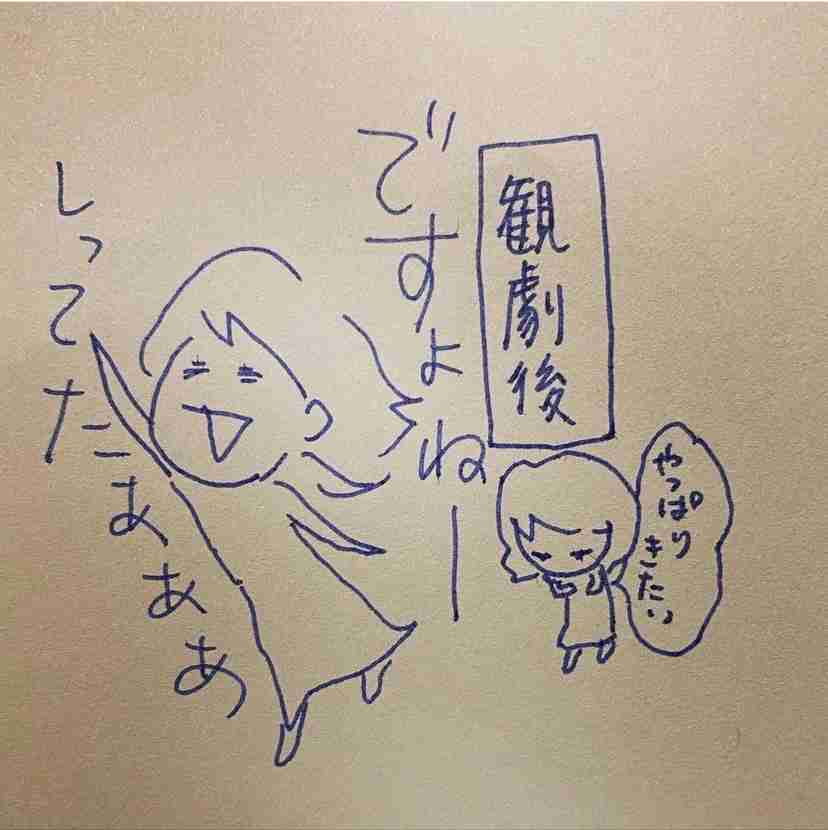 観劇後
ですよねー
しってたぁぁぁぁ
やっぱり
きたい